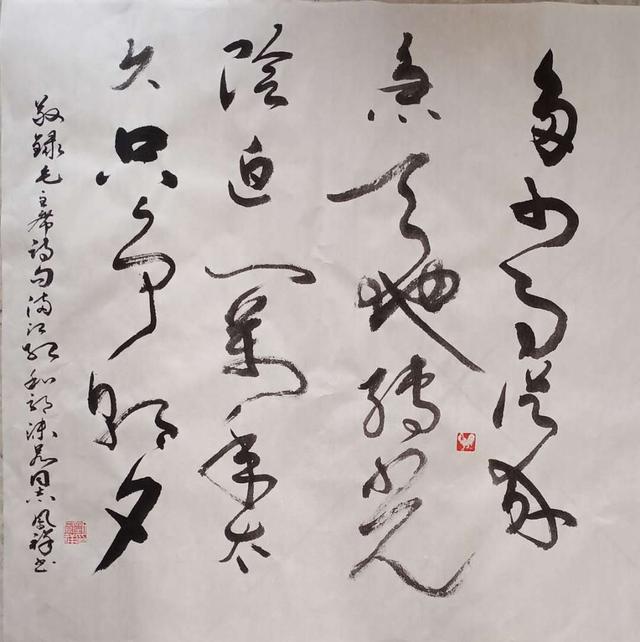 多少事從来
急天地轉光
陰迫一萬年太
久只争朝夕
敬録毛主席诗句满江红和郭沫若同志风祥书